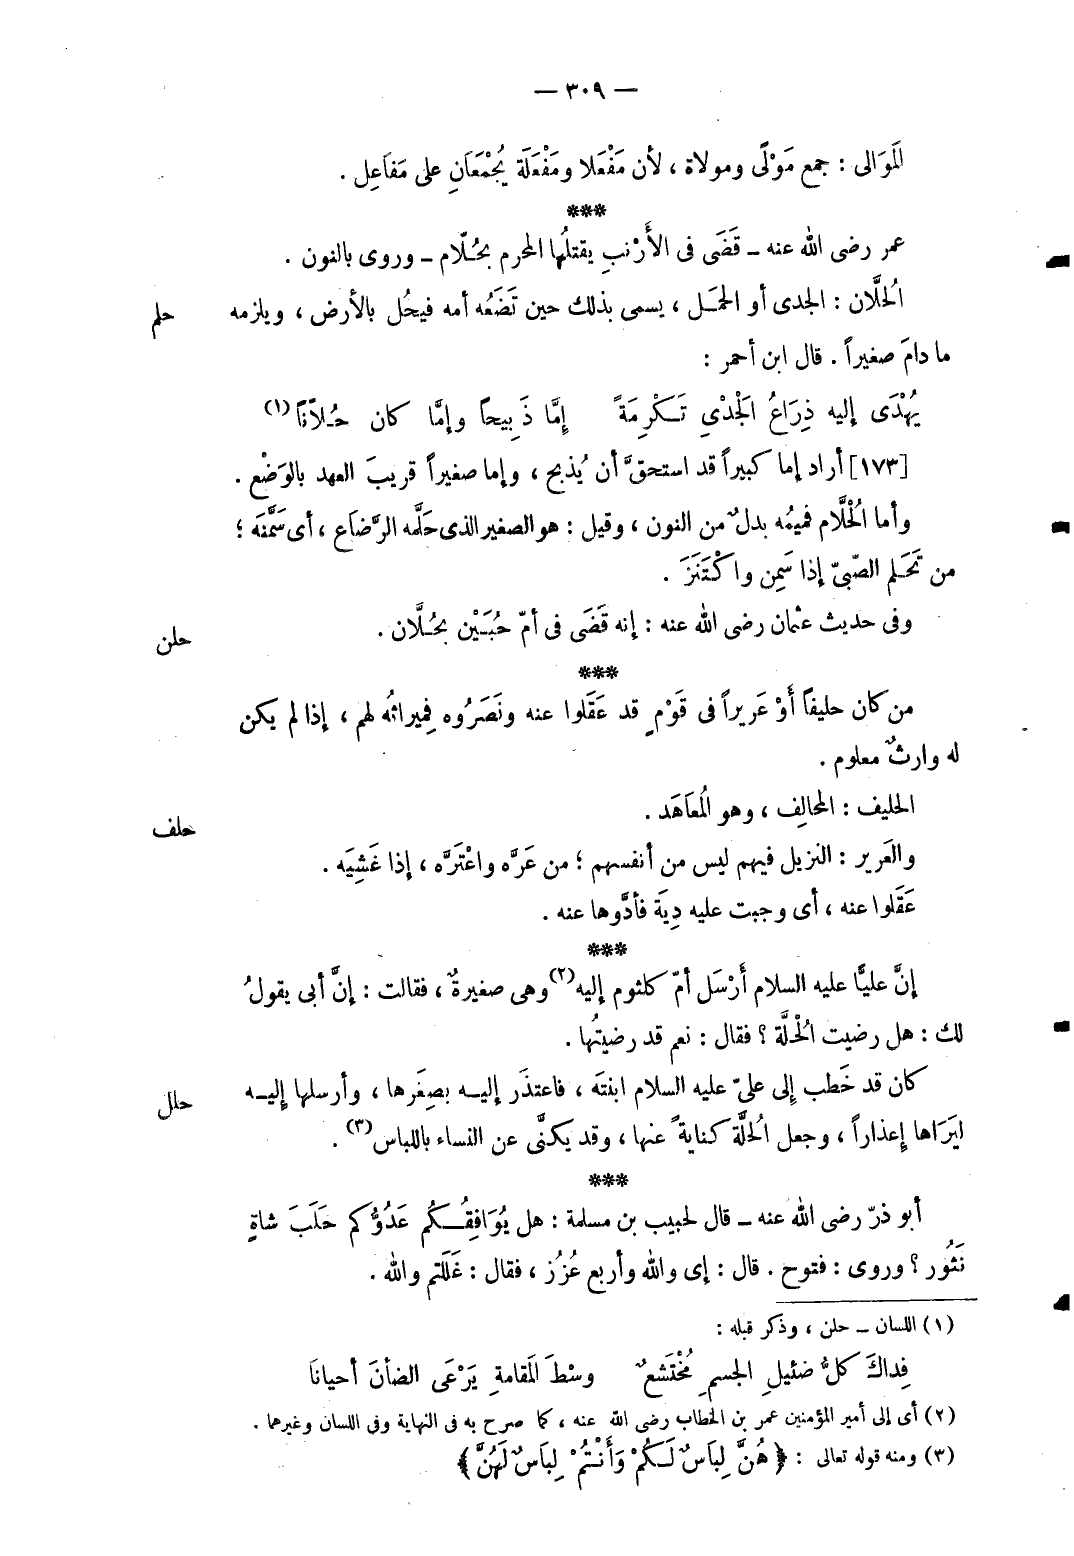 — ٣٠٩ —
المَوَالى : جمع مَوْلًى ومولاة ، لأن مَفْعَلا ومَفْعَلَة يُجْمَعَانِ على مَفاَعِل .
***
عمر رضى الله عنه ــ قَضَى فى الأَرْنبِ يقتلُها المحرم بحُلّام ــ وروى بالنون .
الُحلَّان : الجدى أو الحمَل ، يسمى بذلك حين تَضَعُه أمه فيحُل بالأرض ، ويلزمه
حلم
ما دامَ صغيراً . قال ابن أحمر :
يُهْدَى إليه ذِرَاعُ الجَدْىِ تَكْرِمَةً إمَّا ذَبِيحًا وإمَّا كان حُلاَّنَا (١)
[١٧٣] أراد إما كبيراً قد استحقَّ أن يُذبح ، وإما صغيراً قريبَ العهد بالوَضْع .
وأما الُحْلَّام فميمُه بدلٌ من النون ، وقيل : هو الصغير الذى حَلَّمه الرَّضاَع ، أى سَمَّنَه ؛
من تَحَلم الصّبىّ إذا سَمِن واكْتَنَزَ .
وفى حديث عثمان رضى الله عنه : إنه قَضَى فى أمّ حُبَيْن بحُلَّان .
حلن
***
من كان حليفًا أَوْ عَريراً فى قَوْمٍ قد عَقَلوا عنه ونَصَرُوه فِميراثُه لهم ، إذا لم يكن
له وارثٌ معلوم .
الحليف : المحالِف ، وهو المُعاَهَد .
حلف
والعَرير : النزيل فيهم ليس من أنفسهم ؛ من عَرَّه واعْتَرَّه ، إذا غَشِيَه .
عَقَلوا عنه ، أى وجبت عليه دِيَة فأدَّوها عنه .
***
إنَّ عليًّا عليه السلام أَرْسَل أمّ كلثوم إليه (٢) وهى صغيرةٌ ، فقالت : إنَّ أبى يقولُ
لك : هل رضيت الُحْلَّة ؟ فقال : نعم قد رضيتُها .
كان قد خَطب إلى علىّ عليه السلام ابنتَه ، فاعتذَر إليه بصِغَرها ، وأرسلها إليه
حلل
ليَرَاها إعذاراً ، وجعل الُحلَّة كنايةً عنها ، وقد يكنَّى عن النساء باللباس (٣) .
***
أبو ذرّ رضى الله عنه ــ قال لحبيب بن مسلمة : هل يُوَافِقُكُم عَدُوُّكم حَلَبَ شاةٍ
نَثُور ؟ وروى : فتوح . قال : إى والله وأربع عُزُز ، فقال : غَلَلتم والله .
(١) اللسان ــ حلن ، وذكر قبله :
فِداكَ كلُّ ضئيلِ الجسمِ مُخْتَشعٌ وسْطَ المَقامةِ يَرْعَى الضأنَ أحيانَا
(٢) أى إلى أمير المؤمنين عمر بن الخطاب رضى الله عنه ، كما صرح به فى النهاية وفى اللسان وغيرها .
(٣) ومنه قوله تعالى : ﴿ هُنَّ لِباَسٌ لَكُمْ وَأَنْتُمْ لِباَسٌ لَهُنَّ ﴾